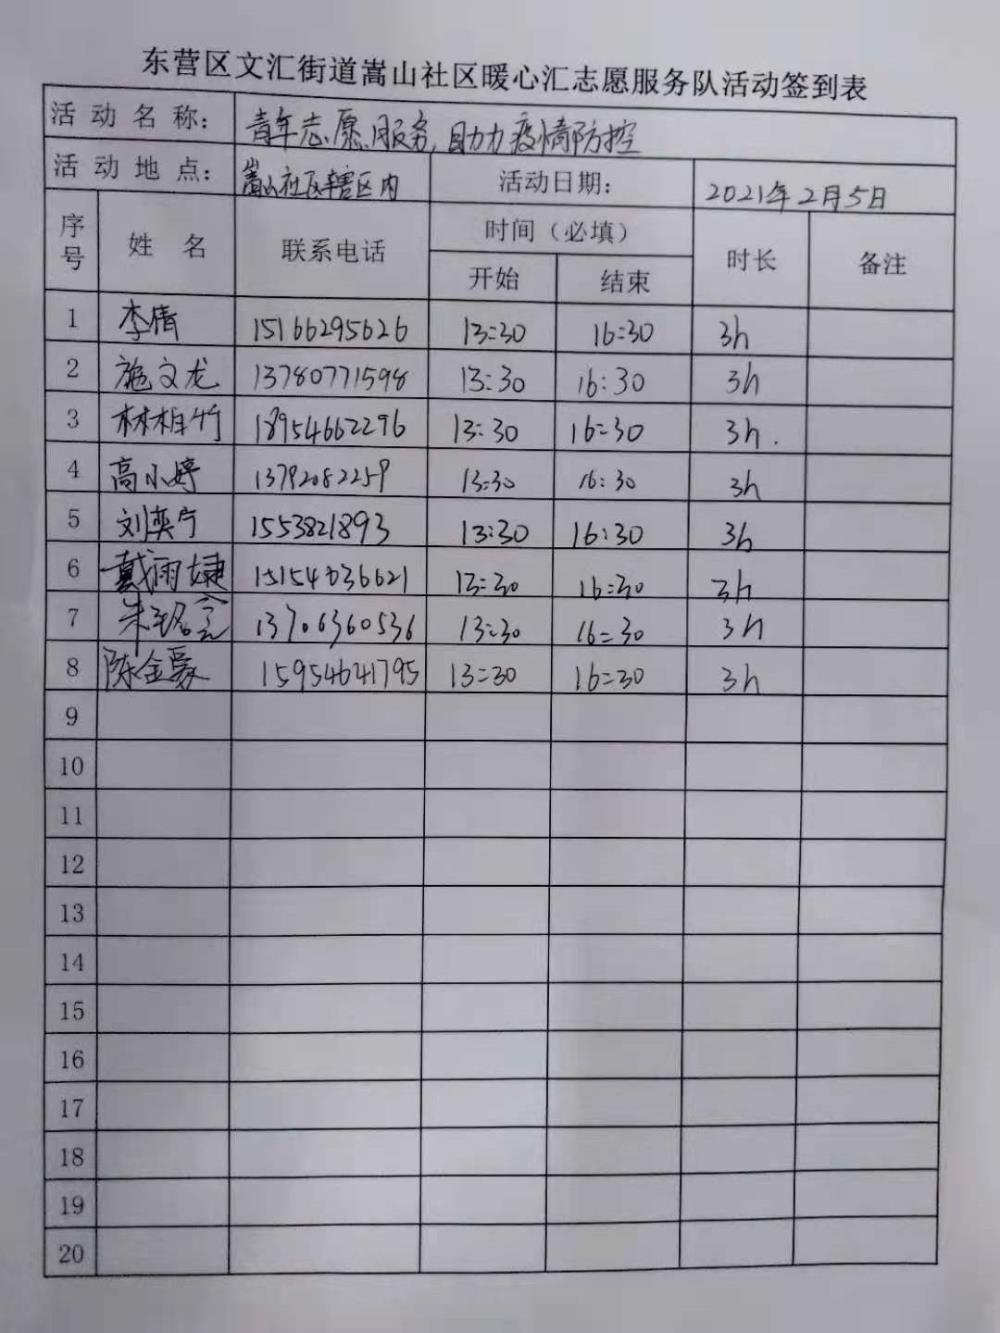 东营区文汇街道嵩山社区暖心汇志愿服务队活动签到表
活动名称： 青年志愿服务,助力疫情防控
活动地点： 嵩山社区辖区内 活动日期： 2021年2月5日
序号 姓名 联系电话 时间（必填） 时长 备注
开始 结束
1 李倩 15166295626 13:30 16:30 3h
2 施文龙 13780771598 13:30 16:30 3h
3 林相竹 18954662296 13:30 16:30 3h.
4 高小婷 13792082259 13:30 16:30 3h
5 刘奕宁 1553821893 13:30 16:30 3h
6 戴雨婕 15154636621 13:30 16:30 3h
7 朱 13706360536 13:30 16:30 3h
8 陈金 15954641795 13:30 16:30 3h
9
10
11
12
13
14
15
16
17
18
19
20